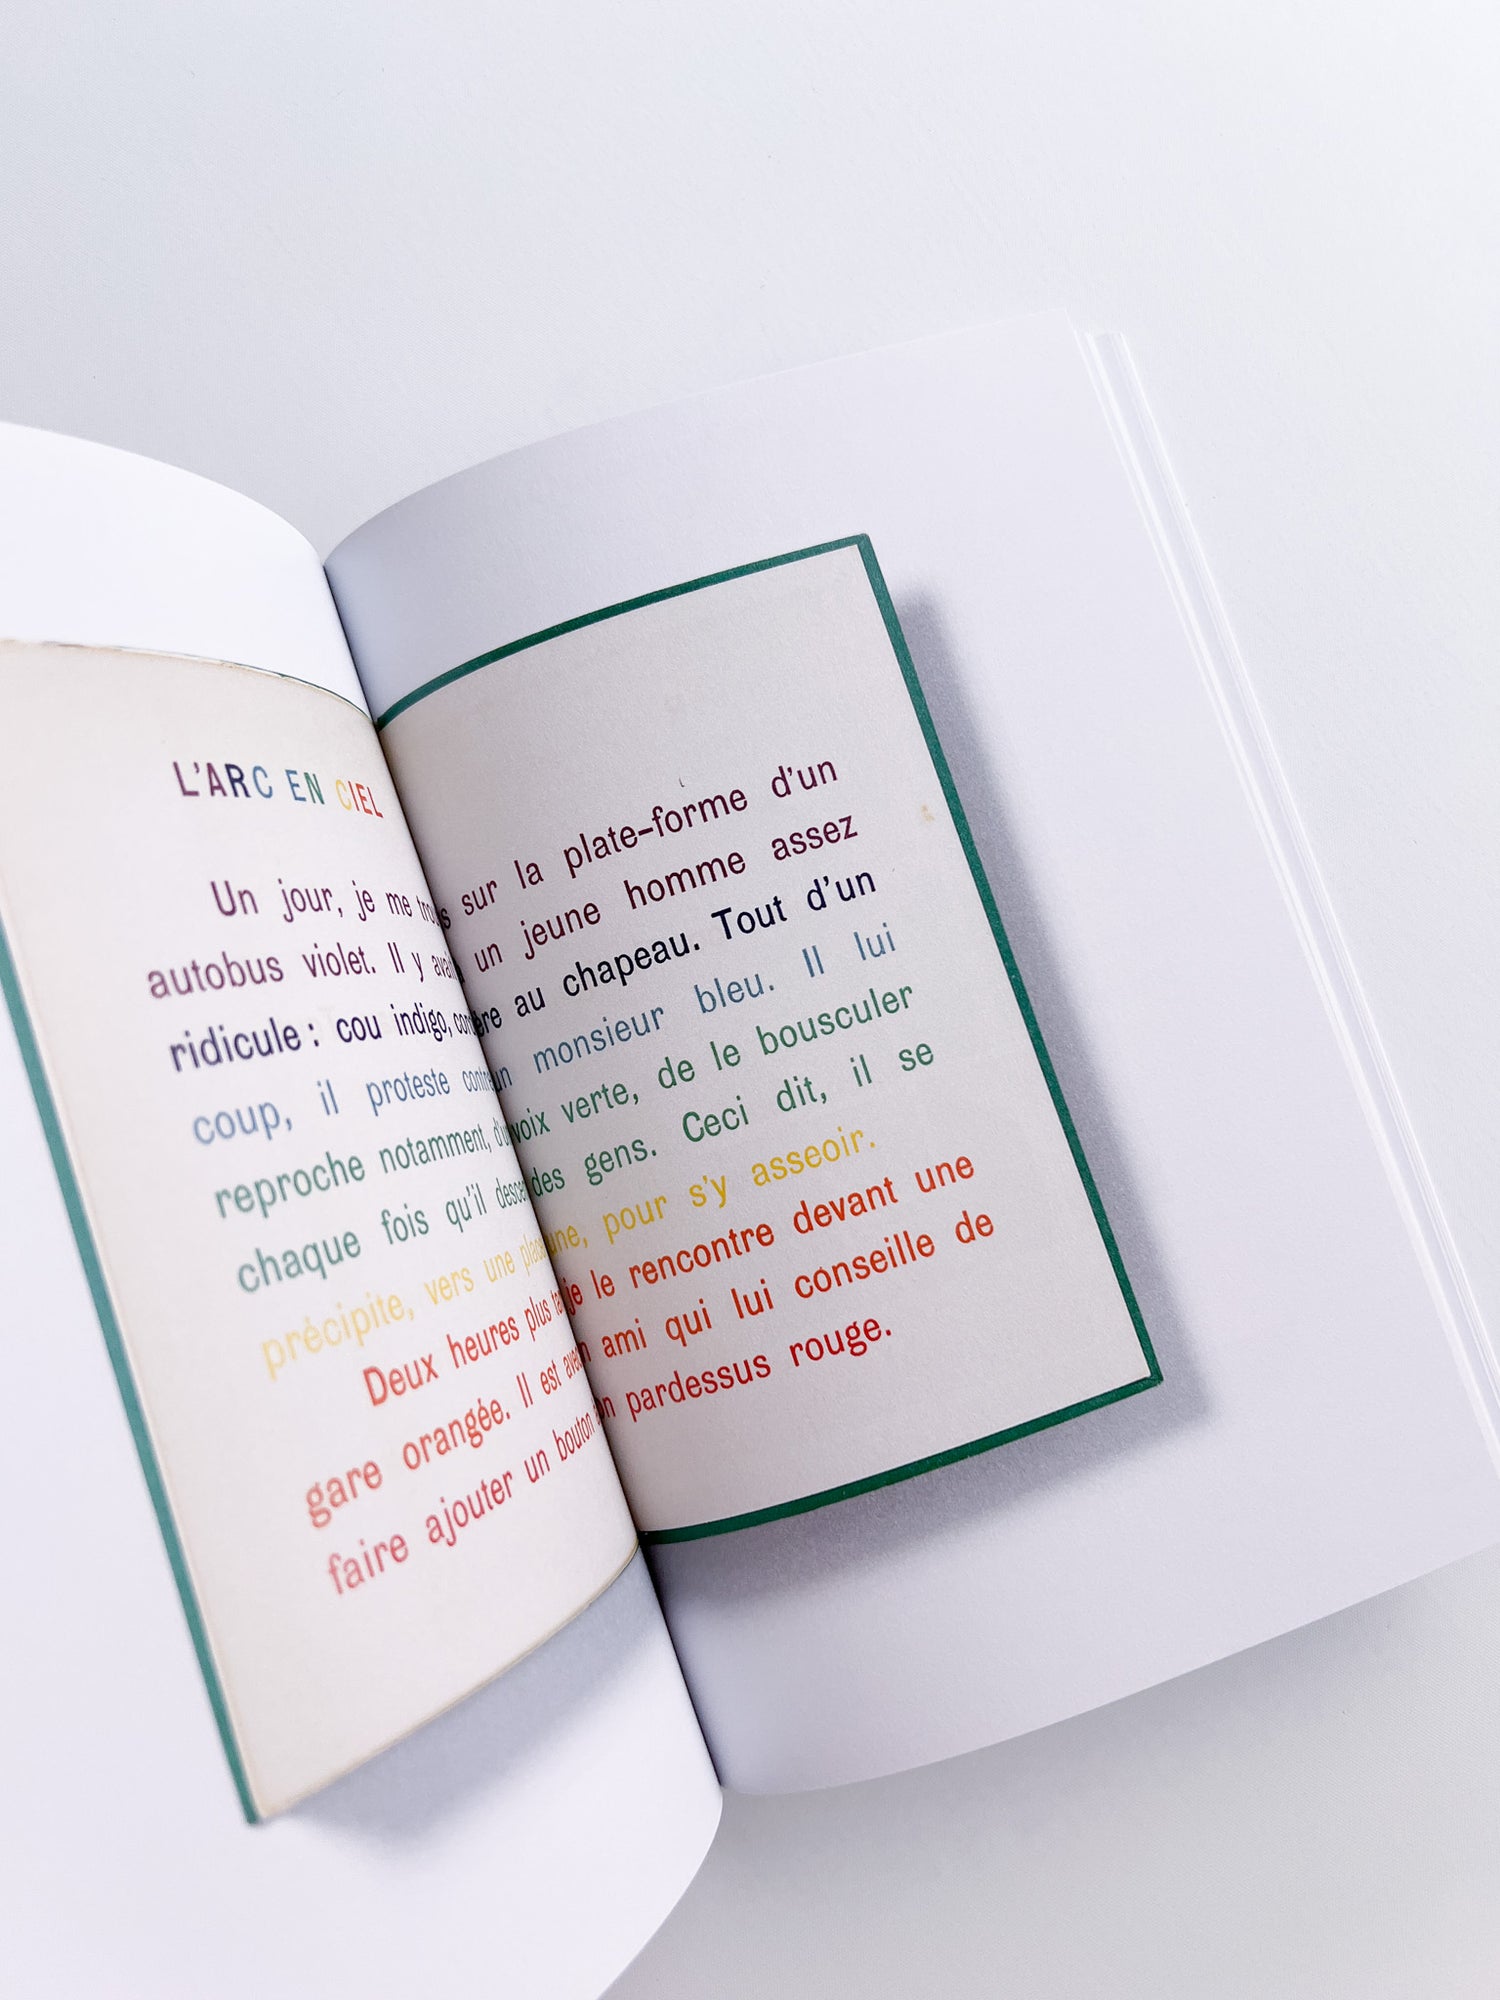 L'ARC EN CIEL
Un jour, je me sur la plate-forme d'un
autobus violet. Il y avait un jeune homme assez
ridicule : cou indigo, au chapeau. Tout d'un
coup, il proteste contre un monsieur bleu. Il lui
reproche notamment, voix verte, de le bousculer
chaque fois qu'il des gens. Ceci dit, il se
précipite, vers une place pour s'y asseoir.
Deux heures plus je le rencontre devant une
gare orangée. Il est avec ami qui lui conseille de
faire ajouter un bouton pardessus rouge.